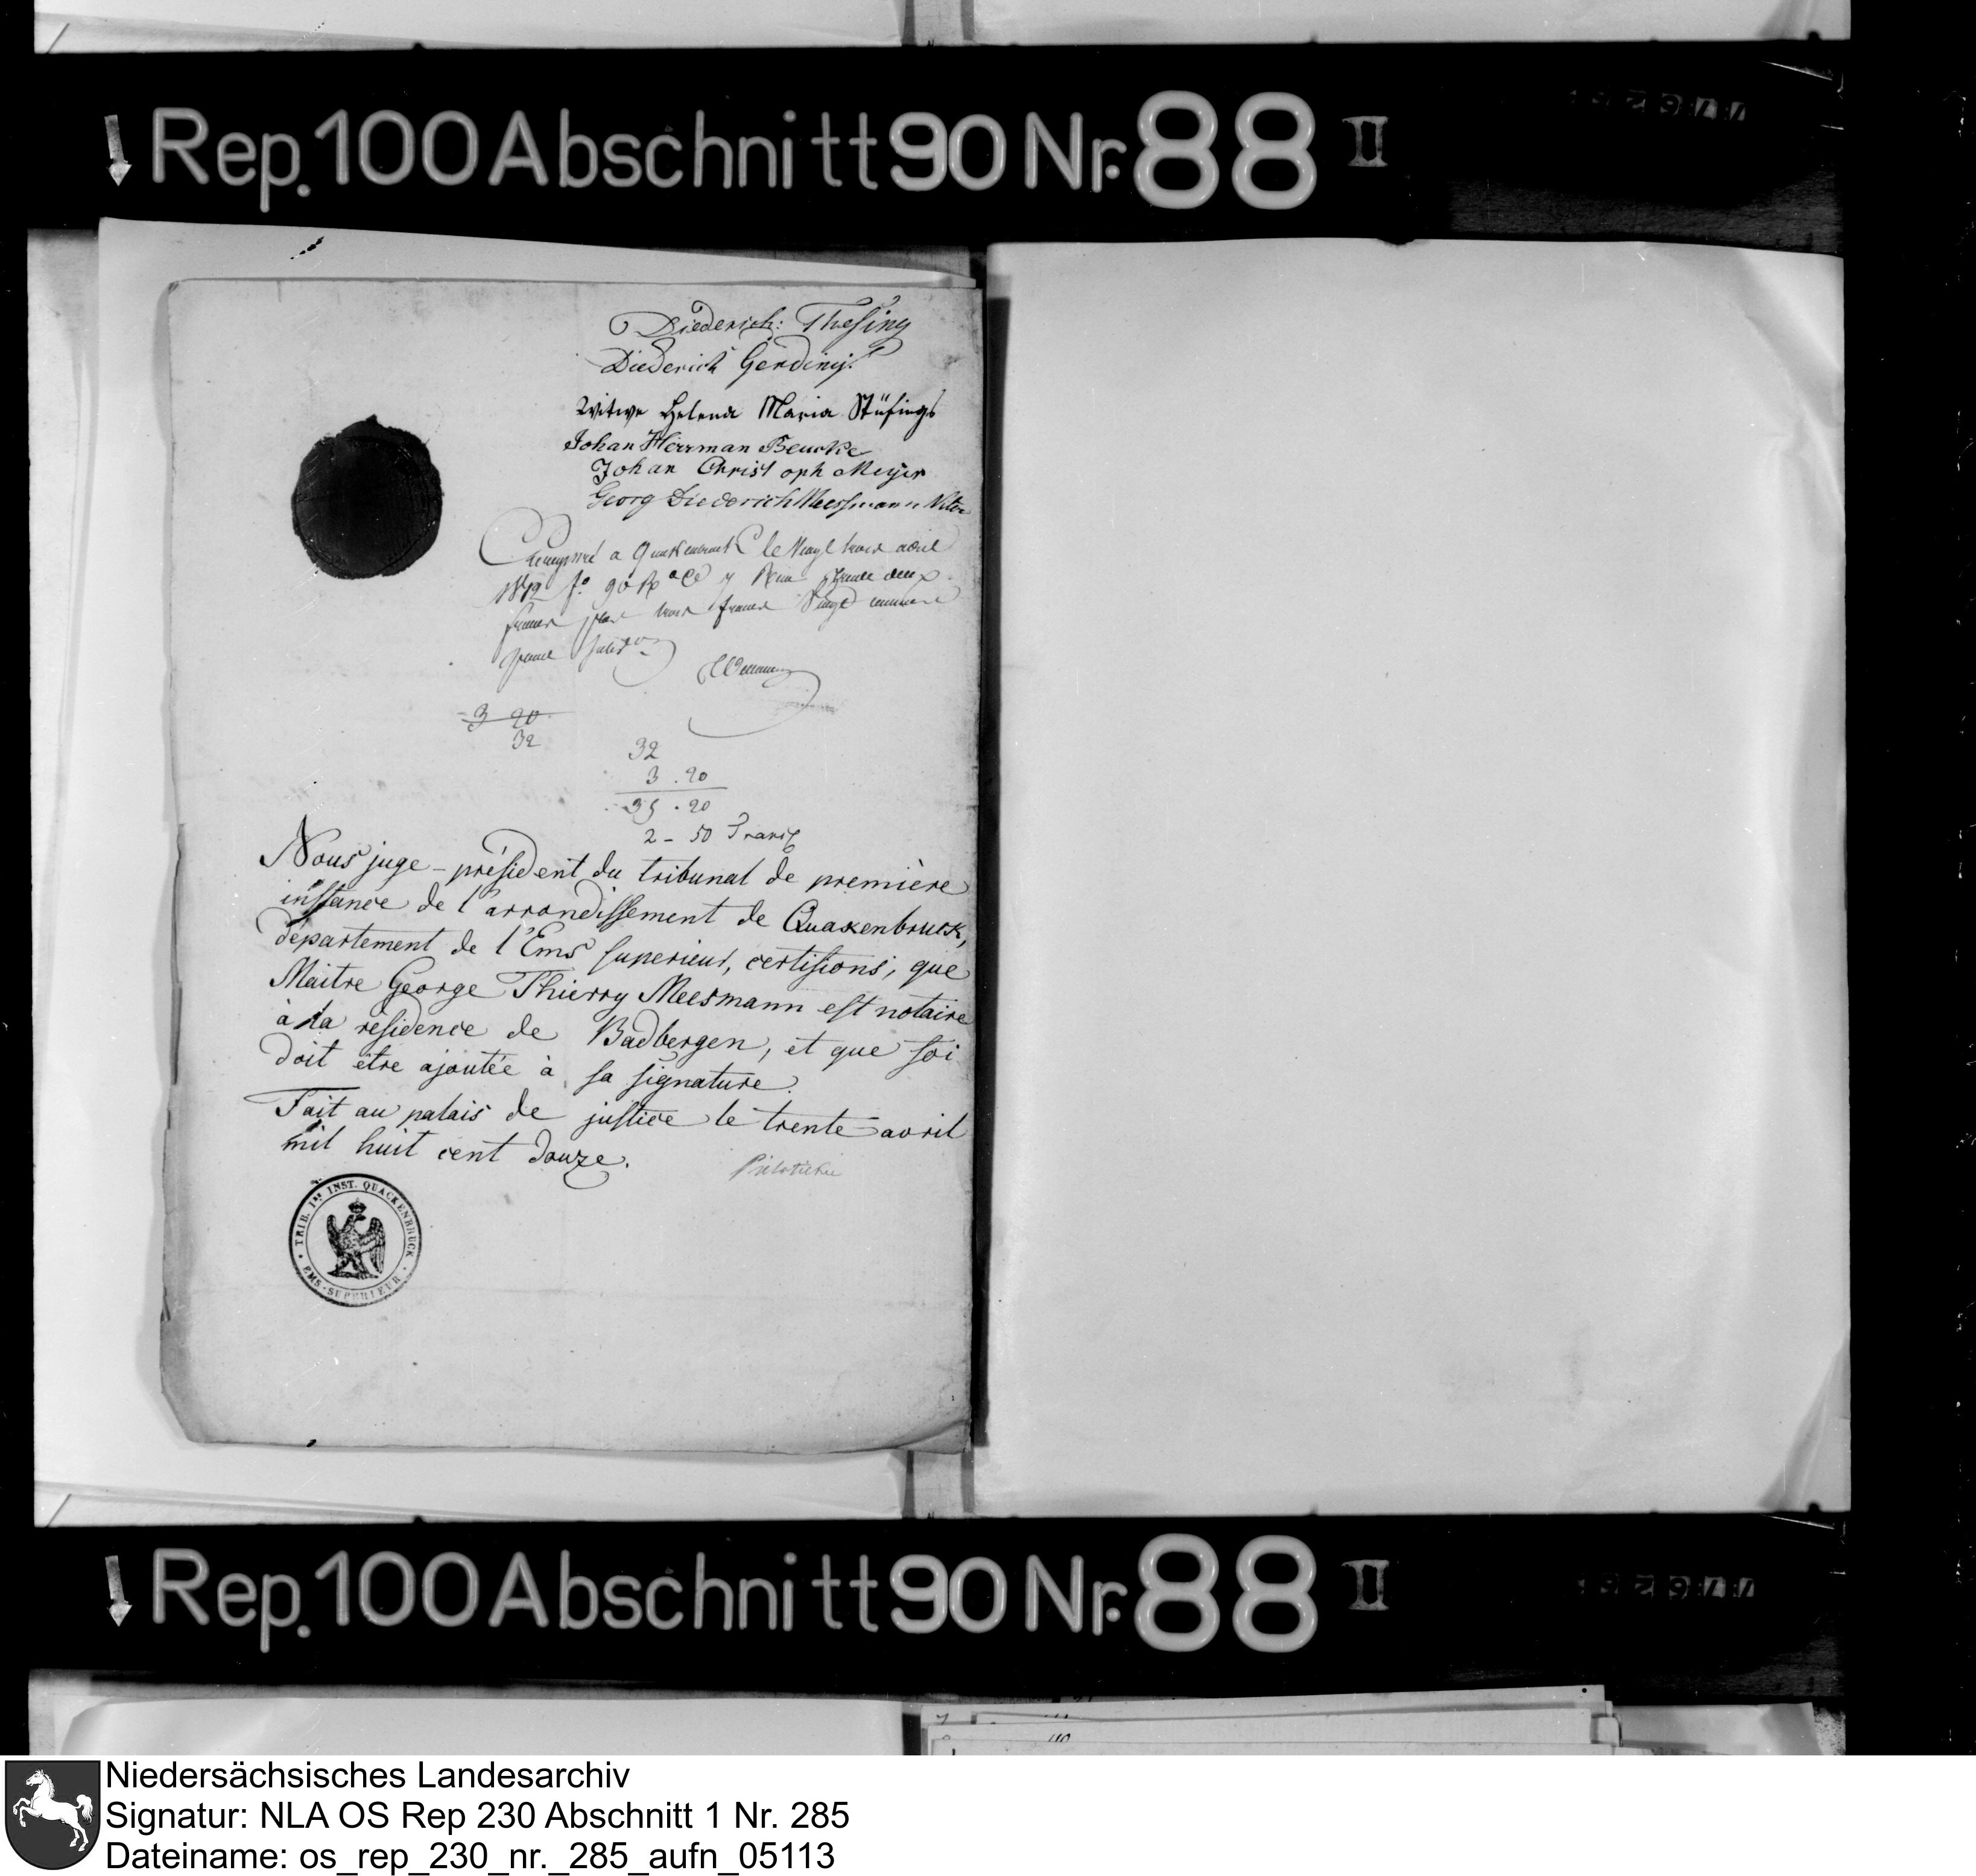 Rep. 100 Abschnitt 90 Nr. 88 II
Diederich: Thesing
Diederich Gerding
Witwe Helena Maria Stüfings
Johan Herrman Beucke
Johan Christoph Meyer
Georg Diederich Meessmann
a le vingt trois avril
1812 f° 90
francs trois francs vingt
3 20
32
32
3 . 20
35 . 20
2 - 50
Nous juge-président du tribunal de première
instance de l'arrondissement de Quakenbruck,
département de l'Ems superieur, certifions, que
Maitre George Thierry Meesmann est notaire
à la residence de Badbergen, et que foi
doit être ajoutée à sa signature.
Fait au palais de justice le trente avril
mil huit cent douze.
TRIB. 1RE INST. QUACKENBRUCK
EMS-SUPERIEUR
Rep. 100 Abschnitt 90 Nr. 88 II
Niedersächsisches Landesarchiv
Signatur: NLA OS Rep 230 Abschnitt 1 Nr. 285
Dateiname: os_rep_230_nr._285_aufn_05113